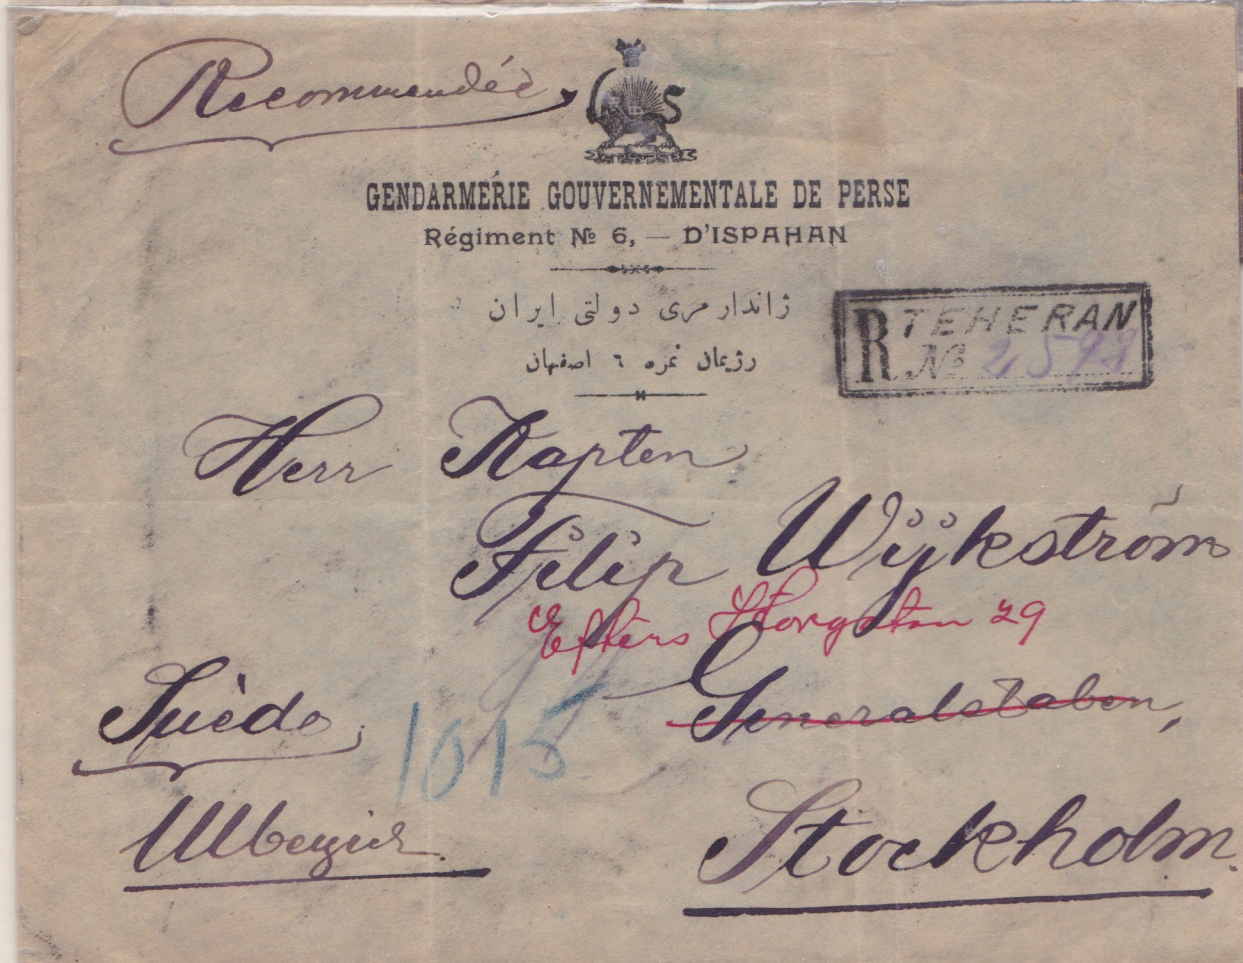 Recommandée
GENDARMERIE GOUVERNEMENTALE DE PERSE
Régiment № 6, — D'ISPAHAN
ژاندارمری دولتی ایران
رژیمان نمره ٦ اصفهان
R TEHERAN
№
Herr Kapten
Filip Wijkström
29
Generalstaben,
Suède
1015
Stockholm.